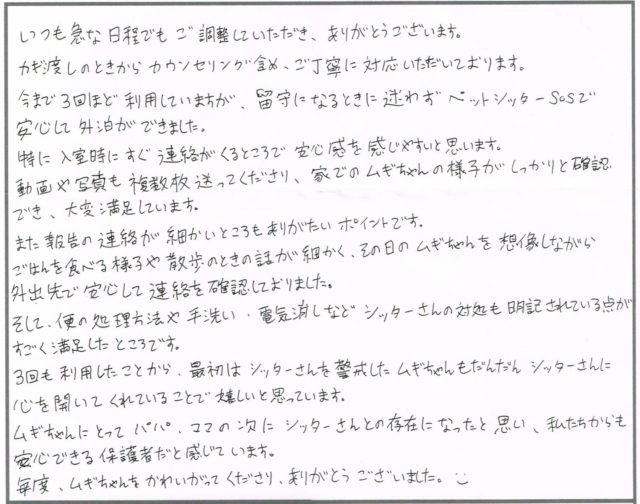 いつも急な日程でもご調整していただき、ありがとうございます。
カギ渡しのときからカウンセリング含め、ご丁寧に対応いただいております。
今まで3回ほど利用していますが、留守になるときに迷わずペットシッターSOSで
安心して外泊ができました。
特に入室時にすぐ連絡がくるところで安心感を感じやすいと思います。
動画や写真も複数枚送ってくださり、家でのムギちゃんの様子がしっかりと確認
でき、大変満足しています。
また報告の連絡が細かいところもありがたいポイントです。
ごはんを食べる様子や散歩のときの話が細かく、その日のムギちゃんを想像しながら
外出先で安心して連絡を確認しておりました。
そして、便の処理方法や手洗い・電気消しなどシッターさんの対処も明記されている点が
すごく満足したところです。
3回も利用したことから、最初はシッターさんを警戒したムギちゃんもだんだんシッターさんに
心を開いてくれていることで嬉しいと思っています。
ムギちゃんにとってパパ、ママの次にシッターさんとの存在になったと思い、私たちからも
安心できる保護者だと感じています。
毎度、ムギちゃんをかわいがってくださり、ありがとうございました。